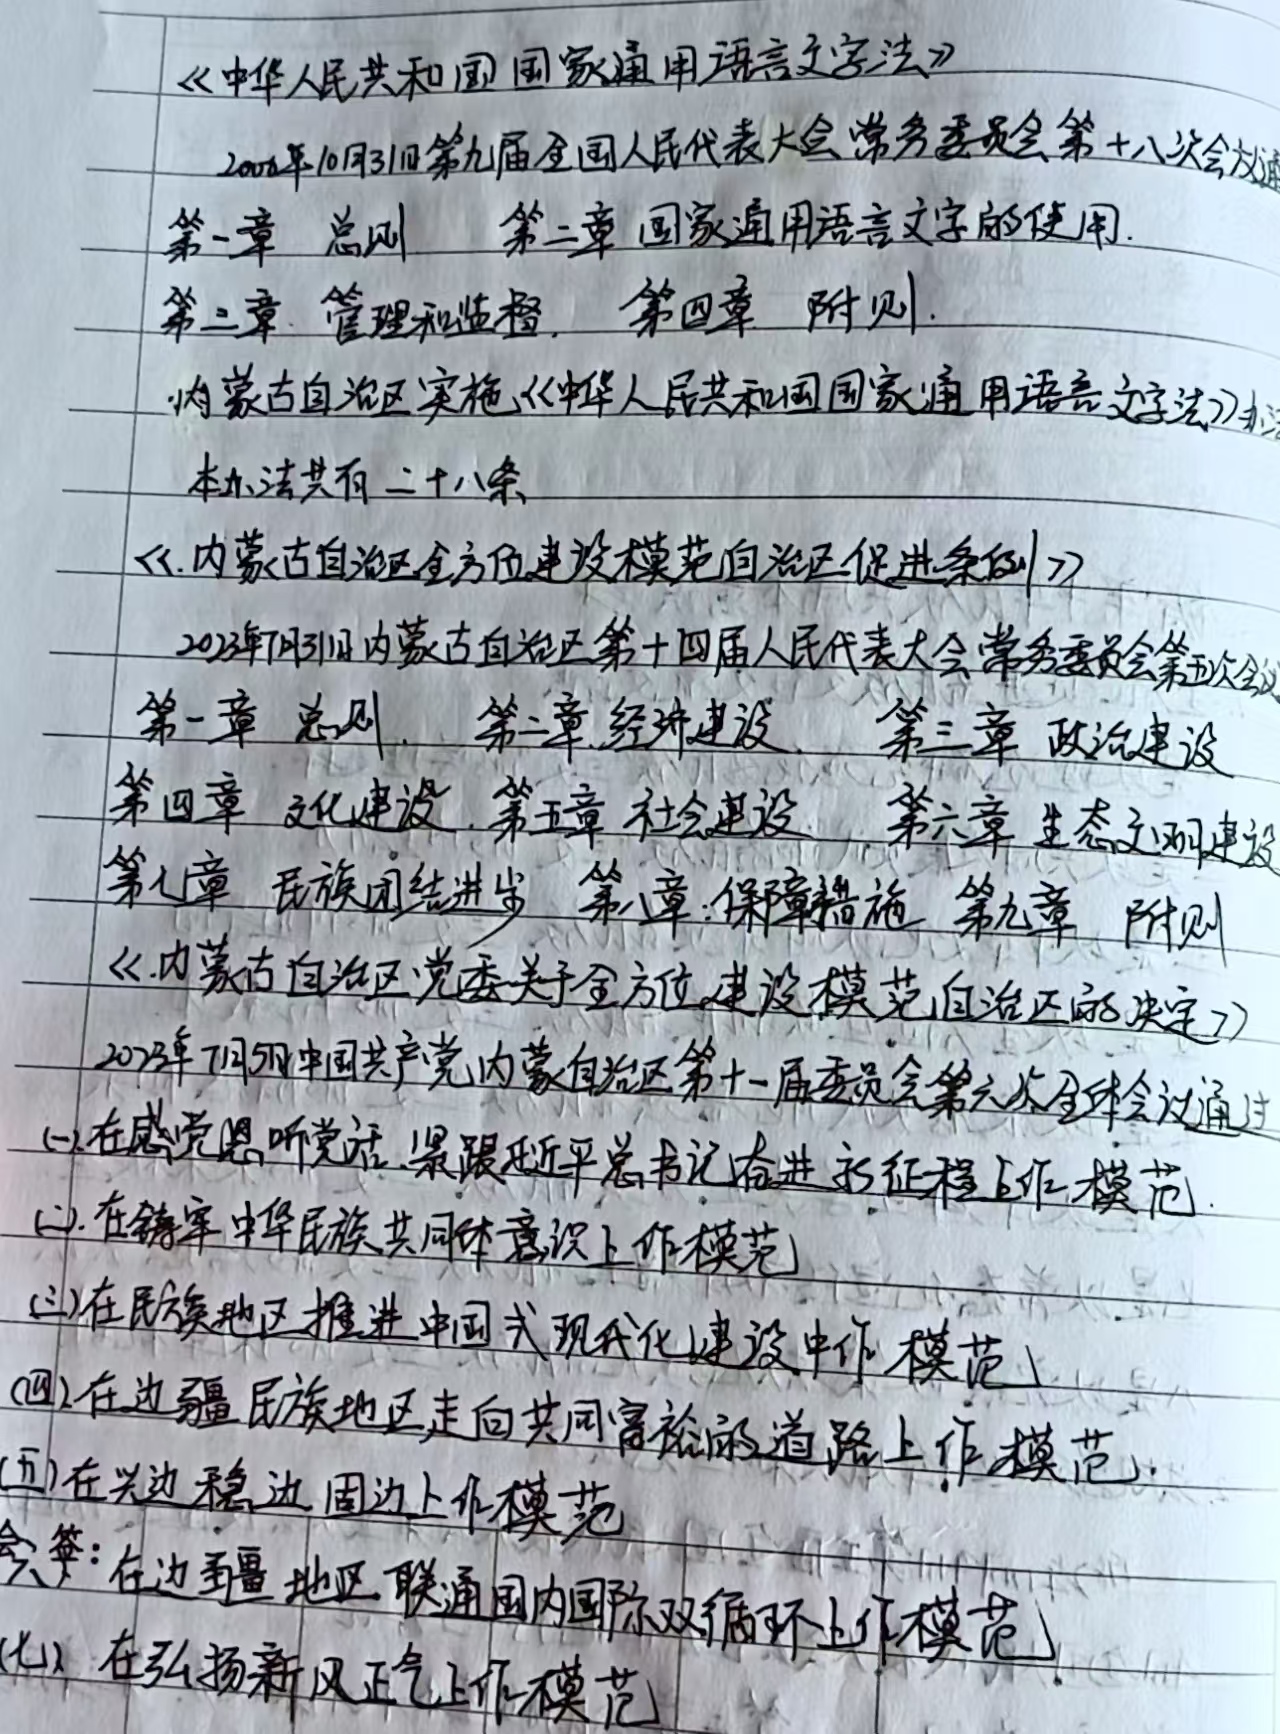 《中华人民共和国国家通用语言文字法》
2000年10月31日第九届全国人民代表大会常务委员会第十八次会议通
第一章 总则 第二章 国家通用语言文字的使用.
第三章 管理和监督. 第四章 附则.
内蒙古自治区实施《中华人民共和国国家通用语言文字法》办法
本办法共有二十八条
《内蒙古自治区全方位建设模范自治区促进条例》
2023年7月31日内蒙古自治区第十四届人民代表大会常务委员会第五次会议
第一章 总则. 第二章 经济建设. 第三章 政治建设
第四章 文化建设. 第五章 社会建设 第六章 生态文明建设
第七章 民族团结进步 第八章:保障措施 第九章 附则
《内蒙古自治区党委关于全方位建设模范自治区的决定》
2023年7月5日中国共产党内蒙自治区第十一届委员会第六次全体会议通过
(一).在感党恩听党话.紧跟习近平总书记奋进新征程上作模范.
(二).在铸牢中华民族共同体意识上作模范
(三)在民族地区推进中国式现代化建设中作模范
(四).在边疆民族地区走向共同富裕的道路上作模范.
(五)在兴边稳边固边上作模范
会签:在边疆地区联通国内国际双循环上作模范
(七)在弘扬新风正气上作模范